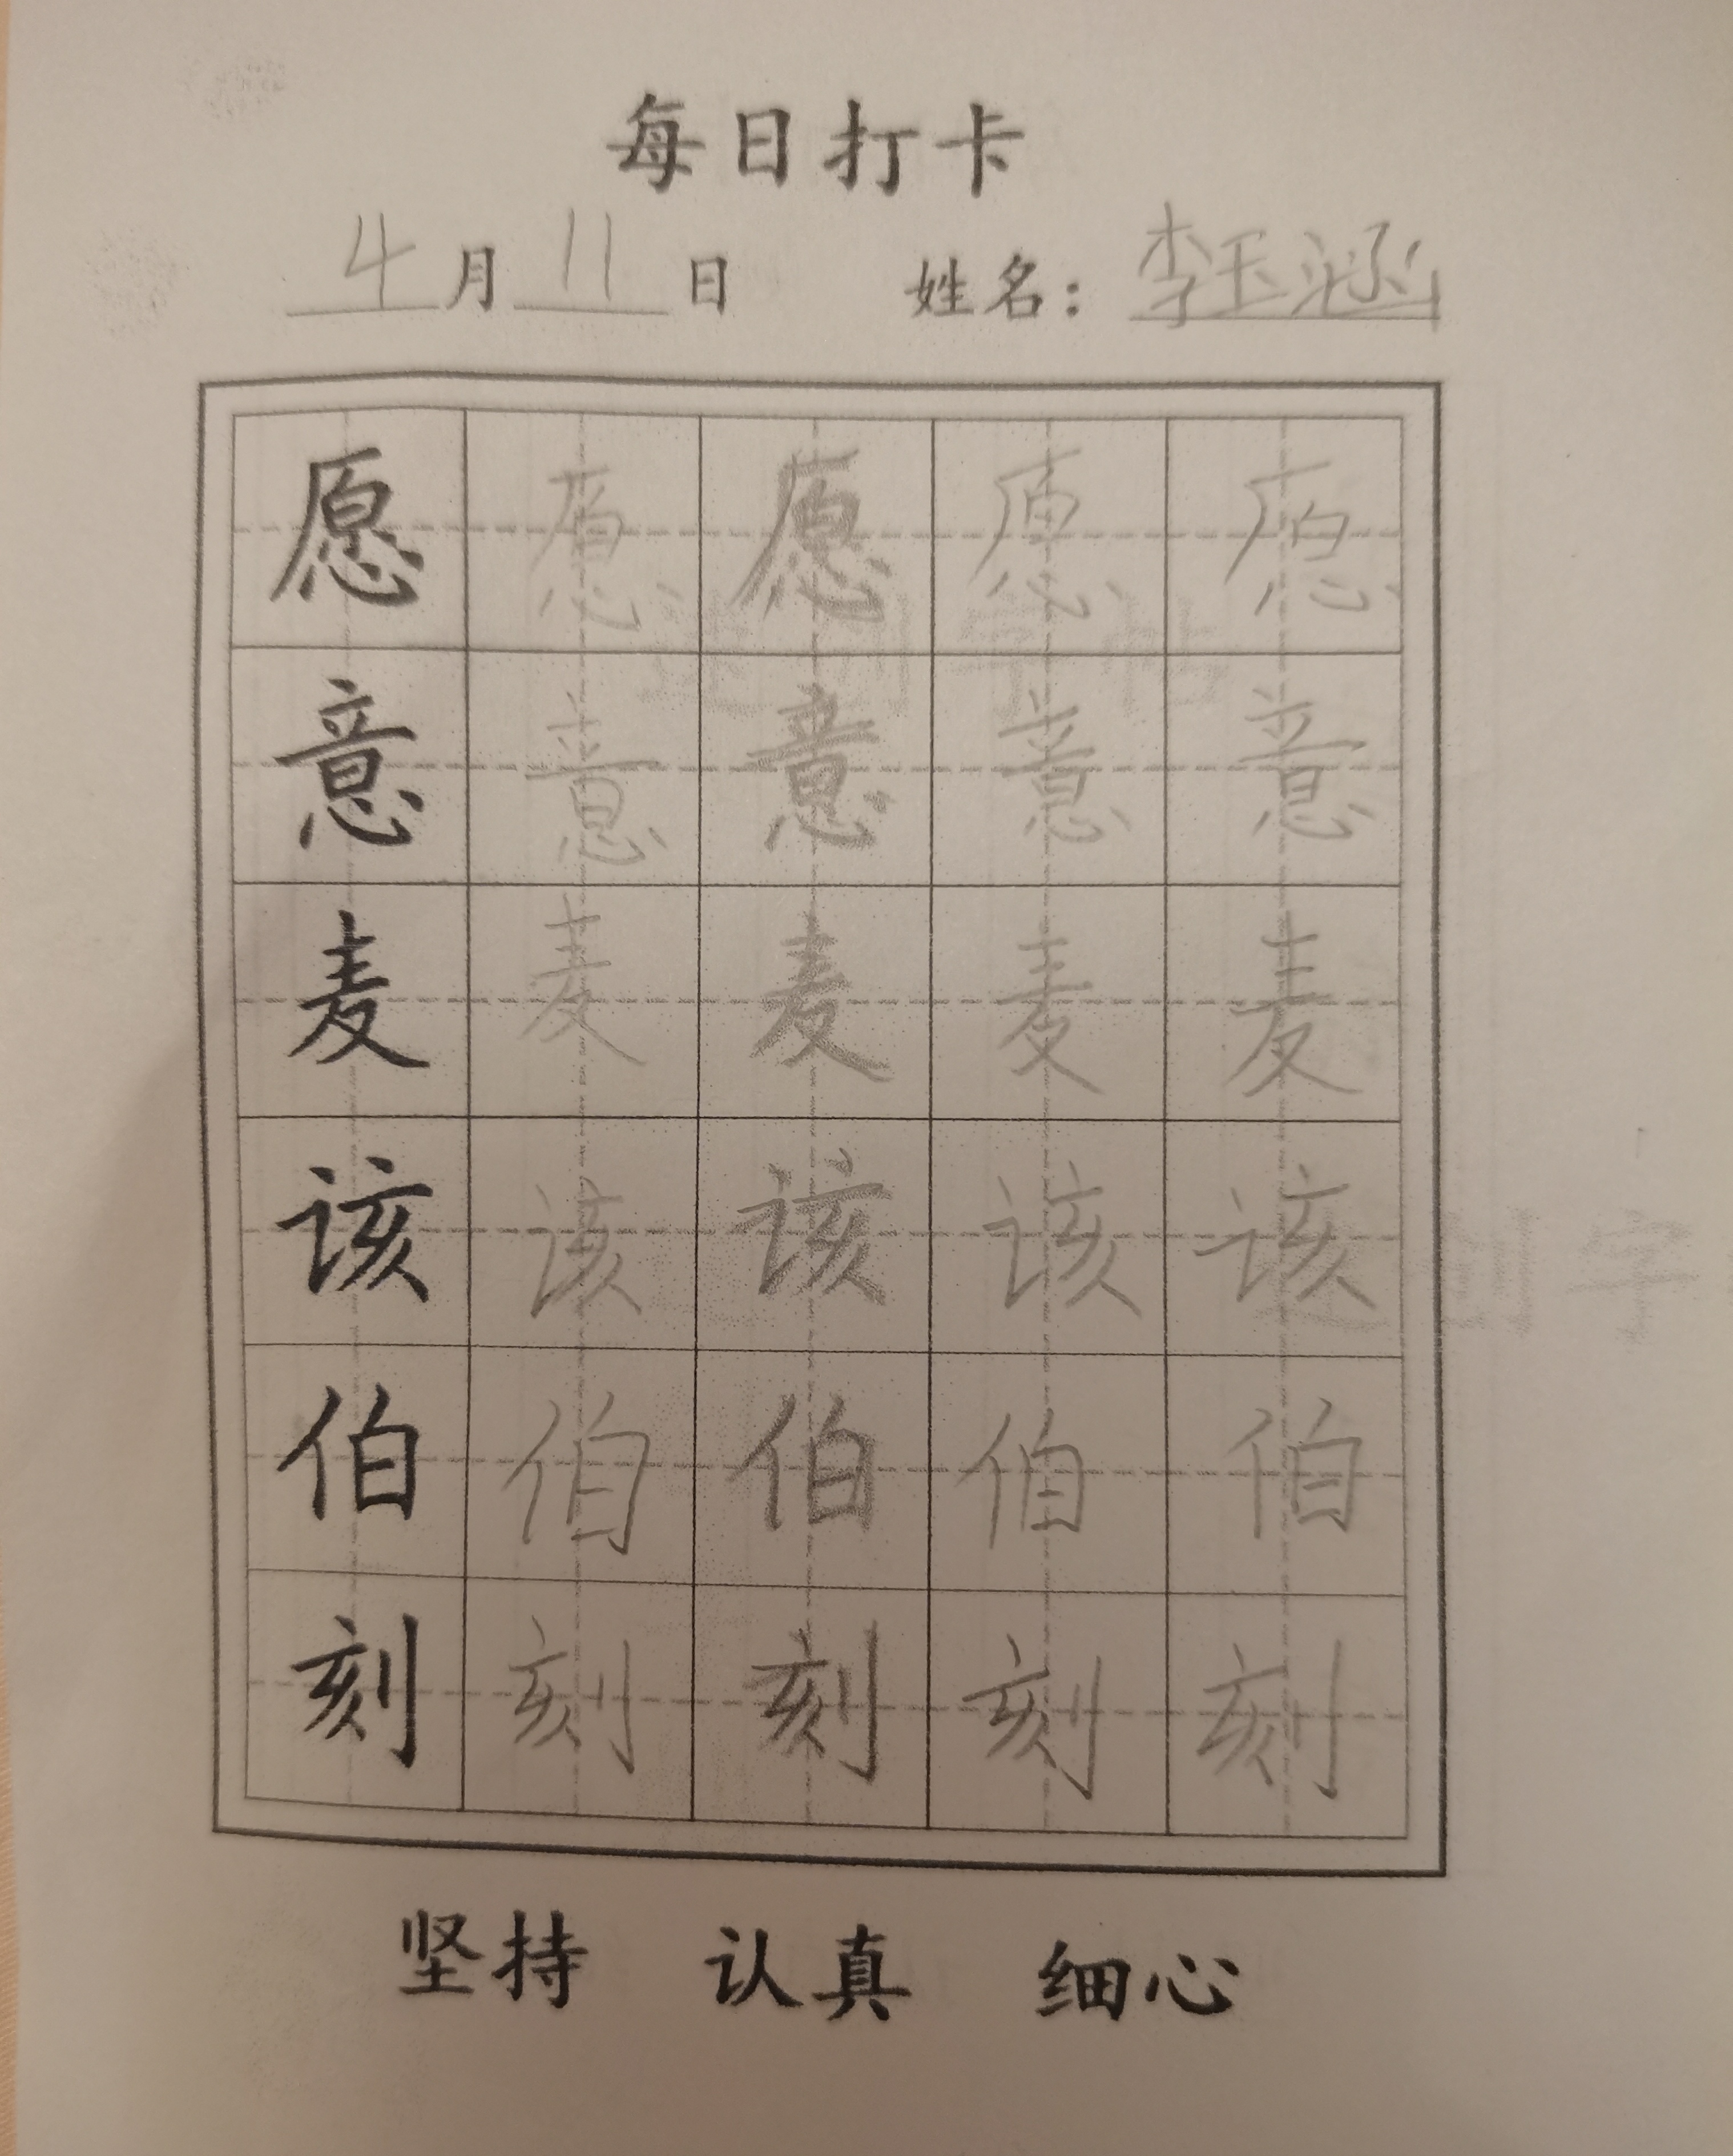 每日打卡
4月11日 姓名：李玉涵
愿 愿 愿 愿 愿
意 意 意 意 意
麦 麦 麦 麦 麦
该 该 该 该 该
伯 伯 伯 伯 伯
刻 刻 刻 刻 刻
坚持 认真 细心